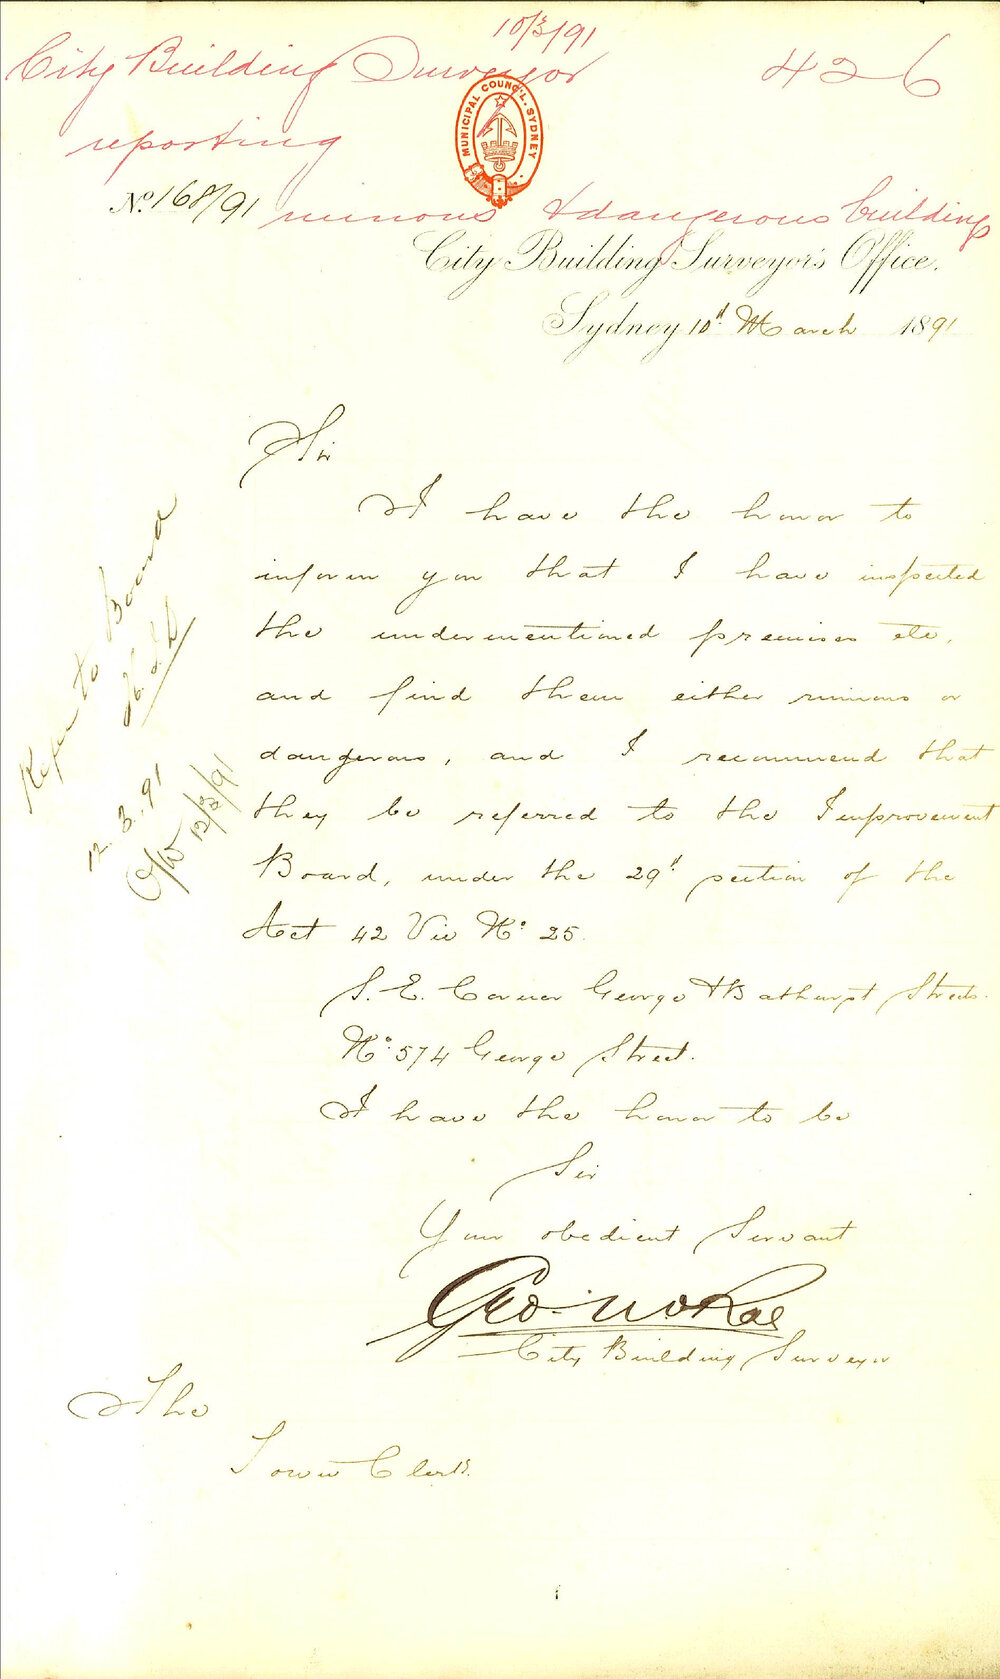 10/3/91
City Building Surveyor 426
reporting
MUNICIPAL COUNCIL. SYDNEY
No. 168/91 ruinous & dangerous buildings
City Building Surveyor's Office.
Sydney 10th March 1891
Sir
I have the honor to
inform you that I have inspected
the undermentioned premises etc,
and find them either ruinous or
dangerous, and I recommend that
they be referred to the Improvement
Board, under the 29th section of the
Act 42 Vic No. 25.
S. E. Corner George & Bathurst Streets.
No. 574 George Street.
I have the honor to be
Sir
Your obedient Servant
Geo. McRae
City Building Surveyor
The
Town Clerk.
Refer to Board
12.3.91
12/3/91